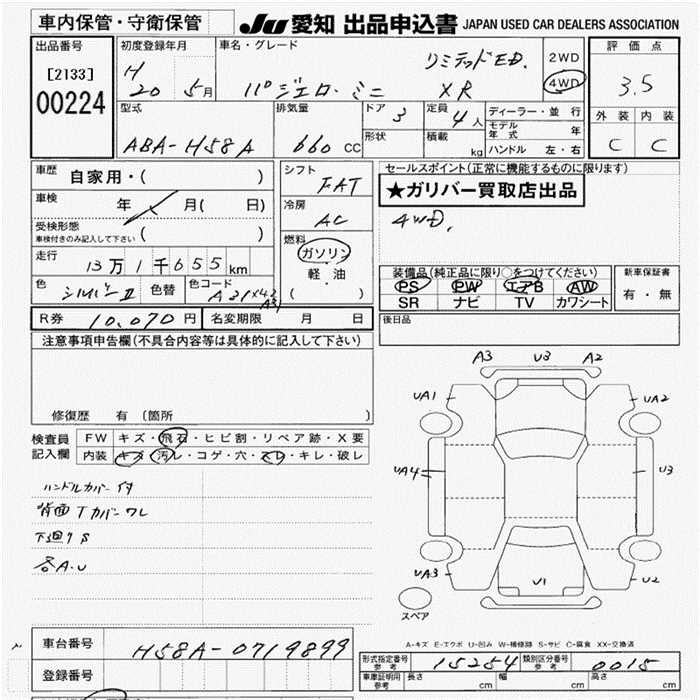 車内保管・守衛保管
JU 愛知 出品申込書 JAPAN USED CAR DEALERS ASSOCIATION
出品番号
[2133]
00224
初度登録年月
H
20 5月
車名・グレード
リミテッドED.
パジェロ・ミニ XR
2WD
4WD
評価点
3.5
外装 内装
C C
型式
ABA-H58A
排気量
660 cc
ドア 3
形状
定員 4人
積載 kg
ディーラー・並行
モデル年式 年
ハンドル 左・右
車歴 自家用・( )
車検 年 月( 日)
受検形態
車検付きのみ記入して下さい ( )
走行
13万1千655km
色 シルバーII 色替 色コード A31×42
A31
シフト
FAT
冷房
AC
燃料
ガソリン
軽・油
( )
セールスポイント(正常に機能するものに限ります)
★ガリバー買取店出品
4WD.
装備品(純正品に限り○をつけてください)
PS PW エアB AW
SR ナビ TV カワシート
新車保証書
有・無
R券 10,070円 名変期限 月 日
後日品
注意事項申告欄(不具合内容等は具体的に記入して下さい)
修復歴 有(箇所 )
検査員記入欄
FW キズ・飛石・ヒビ割・リペア跡・X要
内装 キズ・汚レ・コゲ・穴・スレ・キレ・破レ
ハンドルカバー付
背面Tカバーワレ
下廻りS
各A.U
A3 U3 A2
UA1 UA2
UA4 U3
UA3 U1 U2
スペア
A-キズ E-エクボ U-凹み W-補修跡 S-サビ C-腐食 XX-交換済
車台番号 H58A-0719899
登録番号
形式指定番号 参考 15254 類別区分番号 参考 0015
車庫証明用 参考 長さ cm 幅 cm 高さ cm